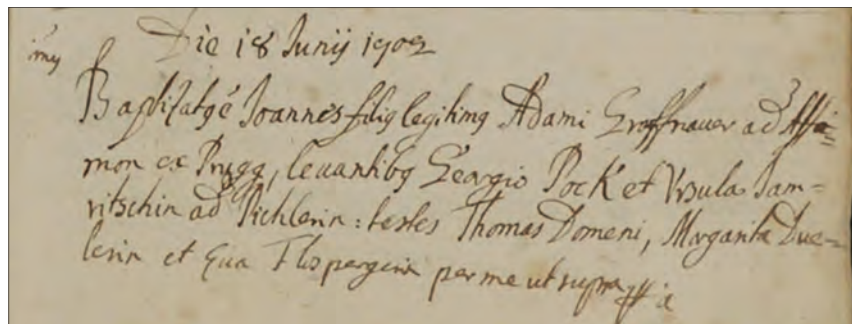 Die 18 Junij 1702
Baptizatg è Joannes filig legitimg Adami Groffnauer ad
mon ex Prugg, levantibg Georgio Pock et Vrsula Jam=
ritschin ad Pichlerin: testes Thomas Domeni, Margarita Due=
lerin et Eua per me ut supra